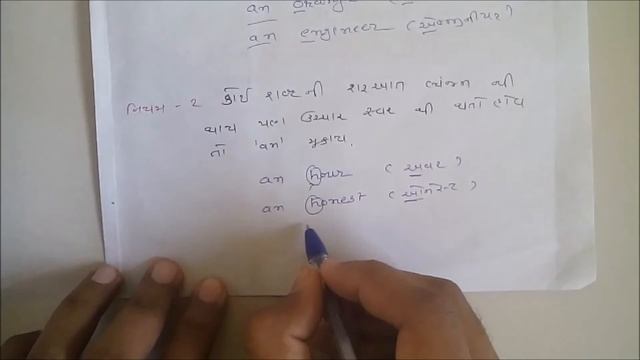 an
an engeneer (એન્જીનીયર)
નિયમ - ૨ કોઈ શબ્દની શરૂઆત વ્યંજન થી
થાય પણ ઉચ્ચાર સ્વર થી થતો હોય
તો 'an' મૂકાય.
an hour (અવર)
an honest (ઓનેસ્ટ)